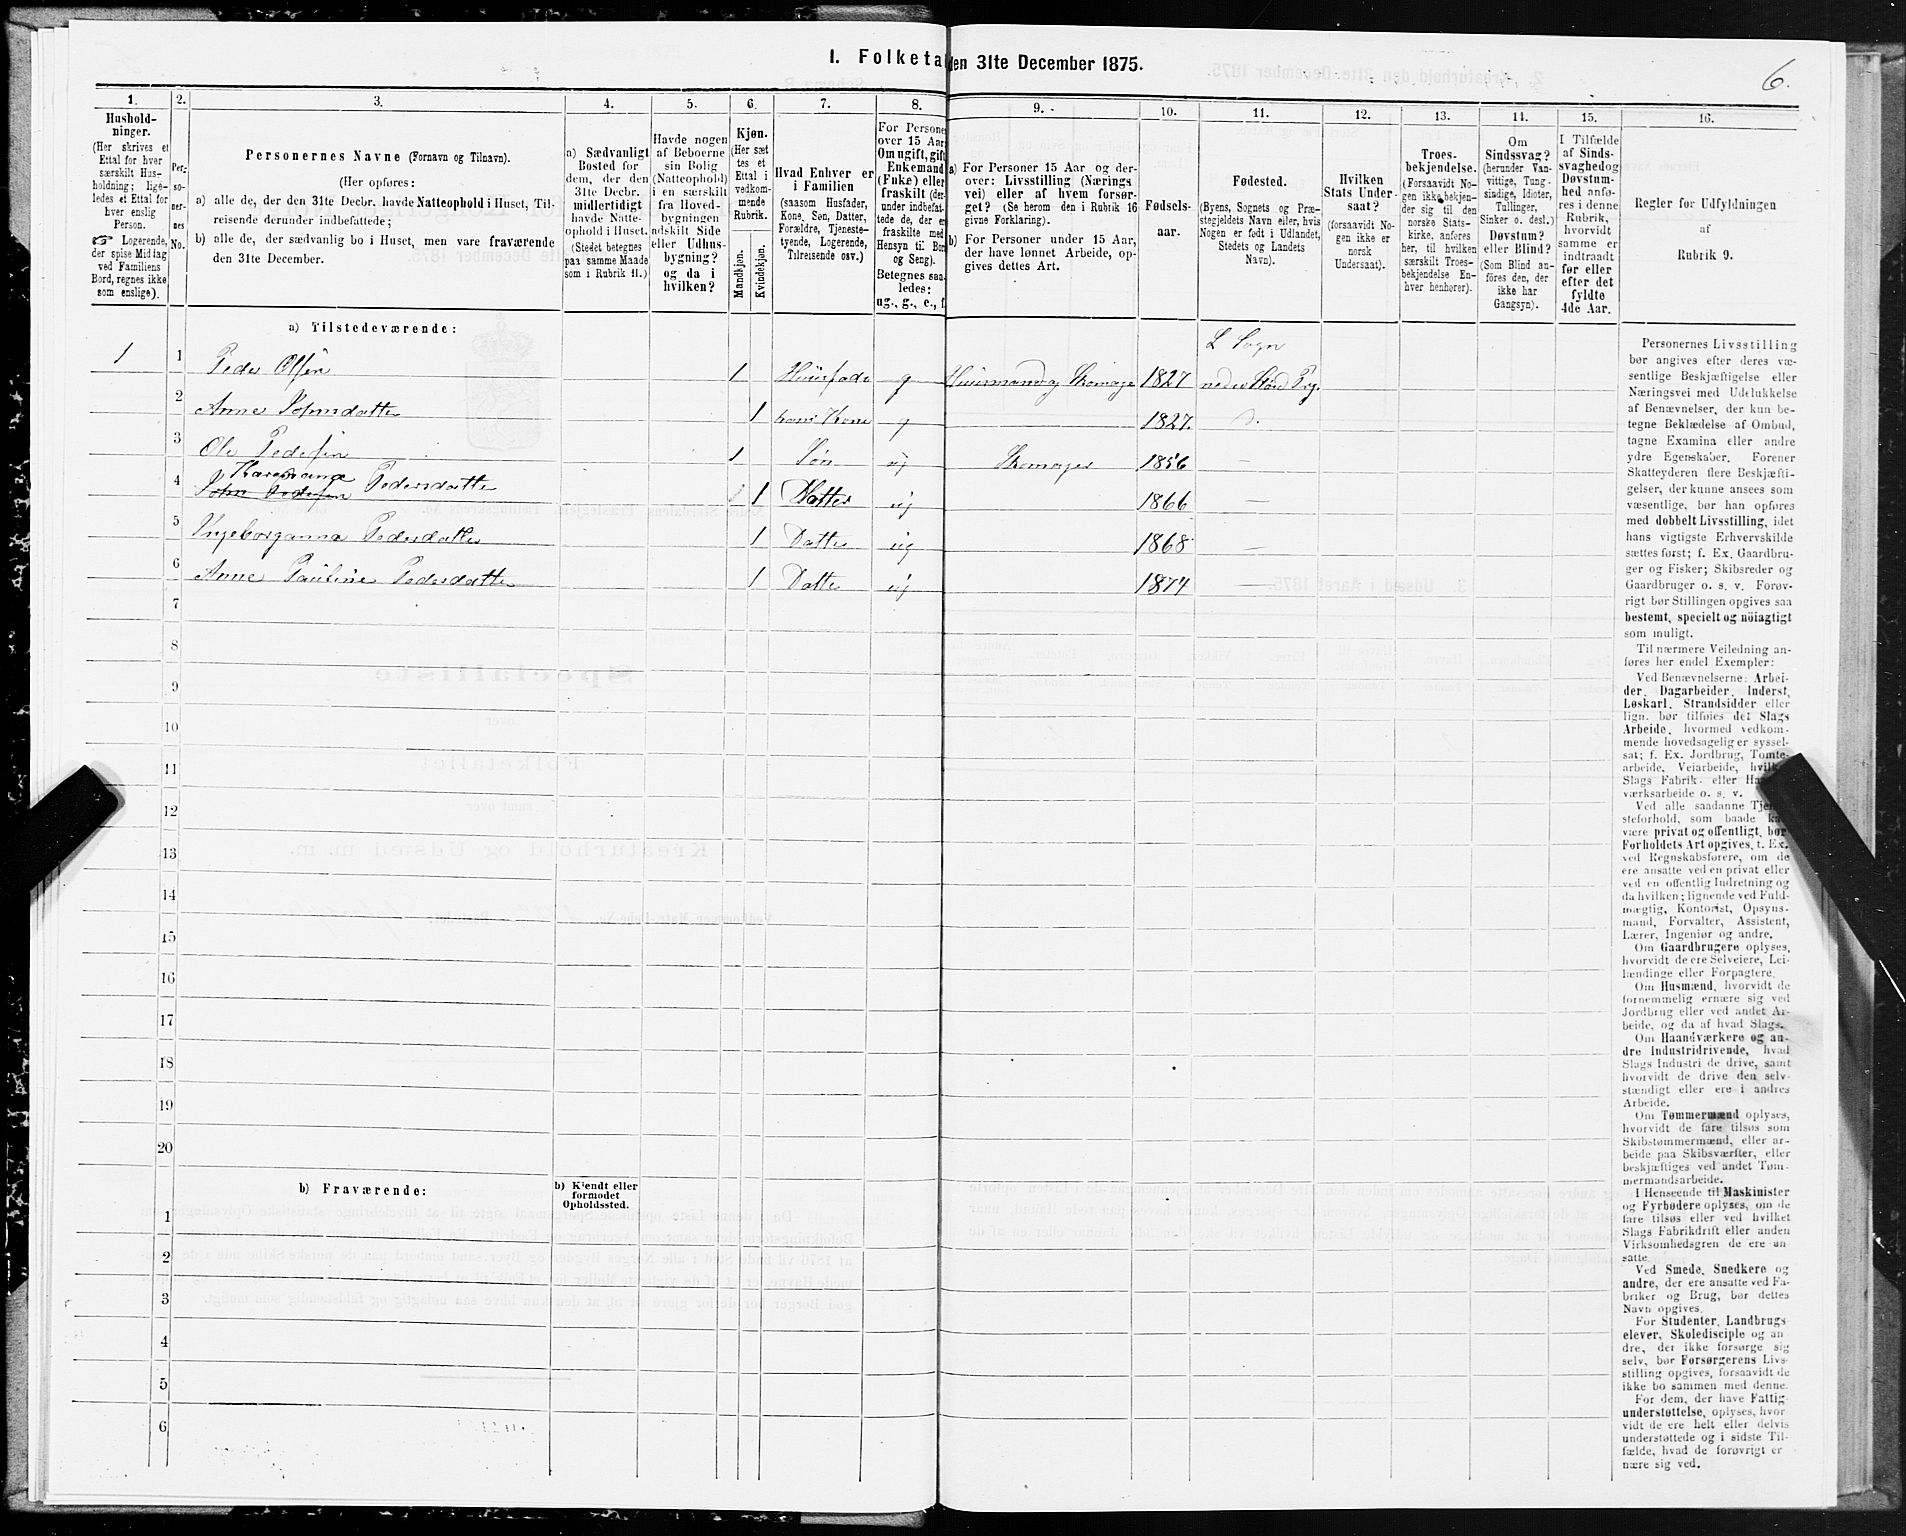 I. Folketa den 31te December 1875.
6.
1.
Hushold-
ninger.
(Her skrives et
Ettal for hver
særskilt Hus-
holdning; lige-
ledes et Ettal for
hver enslig
Person.
☞ Logerende,
der spise Middag
ved Familiens
Bord, regnes ikke
som enslige).
2.
Per-
so-
ner-
nes
No.
3.
Personernes Navne (Fornavn og Tilnavn).
(Her opføres:
a) alle de, der den 31te Decbr. havde Natteophold i Huset, Til-
reisende derunder indbefattede;
b) alle de, der sædvanlig bo i Huset, men vare fraværende
den 31te December.
4.
a) Sædvanligt
Bosted for
dem, der den
31te Decbr.
midlertidigt
havde Natte-
ophold i Huset.
(Stedet betegnes
paa samme Maade
som i Rubrik 11.)
5.
Havde nogen
af Beboerne
sin Bolig
(Natteophold)
i en særskilt
fra Hoved-
bygningen
adskilt Side
eller Udhus-
bygning?
og da i
hvilken?
6.
Kjøn.
(Her sæt
tes et
Ettal i
vedkom-
mende
Rubrik.
Mandkjøn.
Kvindekjøn.
7.
Hvad Enhver er
i Familien
(saasom Husfader,
Kone, Søn, Datter,
Forældre, Tjeneste-
tyende, Logerende,
Tilreisende osv.)
8.
For Persone
over 15 Aar
Om ugift, gift
Enkemand
(Enke) eller
fraskilt (der-
under indbefat-
tede de, der e
fraskilte med
Hensyn til Bo
og Seng).
Betegnes saa-
ledes:
ug., g., e., f.
9.
a) For Personer 15 Aar og der-
over: Livsstilling (Nærings
vei) eller af hvem forsør-
get? (Se herom den i Rubrik 16
givne Forklaring).
b) For Personer under 15 Aar,
der have lønnet Arbeide, op-
gives dettes Art.
10.
Fødsels-
aar.
11.
Fødested.
(Byens, Sognets og Præ-
stegjeldets Navn eller, hvis
Nogen er født i Udlandet,
Stedets og Landets
Navn).
12.
Hvilken
Stats Under-
saat?
(forsaavidt No-
gen ikke er
norsk
Undersaat).
13.
Troes-
bekjendelse.
(Forsaavidt No-
gen ikke bekjen-
der sig til den
norske Stats-
kirke, anføres
her, til hvilken
særskilt Troes-
bekjendelse En-
hver henhører).
14.
Om
Sindssvag?
(herunder Van-
vittige, Tung-
sindige, Idioter,
Tullinger,
Sinker o. desl.)
Døvstum?
eller Blind?
(Som Blind an-
føres den, der
ikke har
Gangsyn).
15.
I Tilfælde
af Sinds-
svaghed og
Døvstum-
hed anfø-
res i denne
Rubrik,
hvorvidt
samme er
indtraadt
før eller
efter det
fyldte
4de Aar.
16.
Regler for Udfyldningen
af
Rubrik 9.
a) Tilstedeværende:
L Sogn
1 1 Peder Olsen 1 Huusfade g Huusmand og Skomage 1827 nedre Størd Prg.
2 Anne Johnsdatte 1 hans Kone g 1827. D.
3 Ole Pedersen 1 Søn ug Skomager 1856 —
Karenanna
4 John Pedersen Pedersdatte 1 Datter ug 1866 —
5 Ingeborganna Pedersdatte 1 Datte ug 1868 —
6 Anne Pauline Pedersdatte 1 Datte ug 1874 —
7
8
9
10
11
12
13
14
15
16
17
18
19
20
b) Fraværende:
b) Kjendt eller
formodet
Opholdssted.
1
2
3
4
5
6
Personernes Livsstilling
bør angives efter deres væ-
sentlige Beskjæftigelse eller
Næringsvei med Udelukkelse
af Benævnelser, der kun be-
tegne Beklædelse af Ombud,
tagne Examina eller andre
ydre Egenskaber. Forener
Skatteyderen flere Beskjæfti-
gelser, der kunne ansees som
væsentlige, bør han opføres
med dobbelt Livsstilling, idet
hans vigtigste Erhvervskilde
sættes først; f. Ex. Gaardbru-
ger og Fisker; Skibsreder og
Gaardbruger o. s. v. Forøv-
rigt bør Stillingen opgives saa
bestemt, specielt og nöiagtigt
som muligt.
Til nærmere Veiledning an-
føres her endel Exempler:
Ved Benævnelserne: Arbei-
der, Dagarbeider, Inderst,
Løskarl, Strandsidder eller
lign. bør tilføies det Slags
Arbeide, hvormed vedkom-
mende hovedsagelig er syssel-
sat; f. Ex. Jordbrug, Tomte-
arbeide, Veiarbeide, hvilk
Slags Fabrik- eller Ha
værksarbeide o. s. v.
Ved alle saadanne Tje
steforhold, som baade k
være privat og offentligt, bør
Forholdets Art opgives, t. Ex.
ved Regnskabsførere, om de
ere ansatte ved en privat eller
ved en offentlig Indretning og
da hvilken; lignende ved Fuld-
mægtig, Kontorist, Opsyns-
mand, Forvalter, Assistent,
Lærer, Ingeniør og andre.
Om Gaardbrugere oplyses,
hvorvidt de ere Selveiere, Lei-
lændinge eller Forpagtere.
Om Husmænd, hvorvidt de
fornemmelig ernære sig ved
Jordbrug eller ved andet Ar-
beide, og da af hvad Slags.
Om Haandværkere og an-
dre Industridrivende, hvad
Slags Industri de drive, samt
hvorvidt de drive den selv-
stændigt eller ere i andres
Arbeide.
Om Tømmermænd oplyses,
hvorvidt de fare tilsøs som
Skibstømmermænd, eller ar-
beide paa Skibsværfter, eller
beskjæftiges ved andet Tøm-
mermandsarbeide.
I Henseende til Maskinister
og Fyrbødere oplyses, om de
fare tilsøs eller ved hvilket
Slags Fabrikdrift eller anden
Virksomhedsgren de ere an-
satte.
Ved Smede, Snedkere og
andre, der ere ansatte ved Fa-
briker og Brug, bør dettes
Navn opgives.
For Studenter, Landbrugs-
elever, Skoledisciple og an-
dre, der ikke forsørge sig
selv, bør Forsørgerens Livs-
stilling opgives, forsaavidt de
ikke bo sammen med denne.
For dem, der have Fattig-
understøttelse, oplyses, hvor
vidt de ere helt eller delvis
understøttede og i sidste Til-
fælde, hvad de forøvrigt er
nære sig ved.